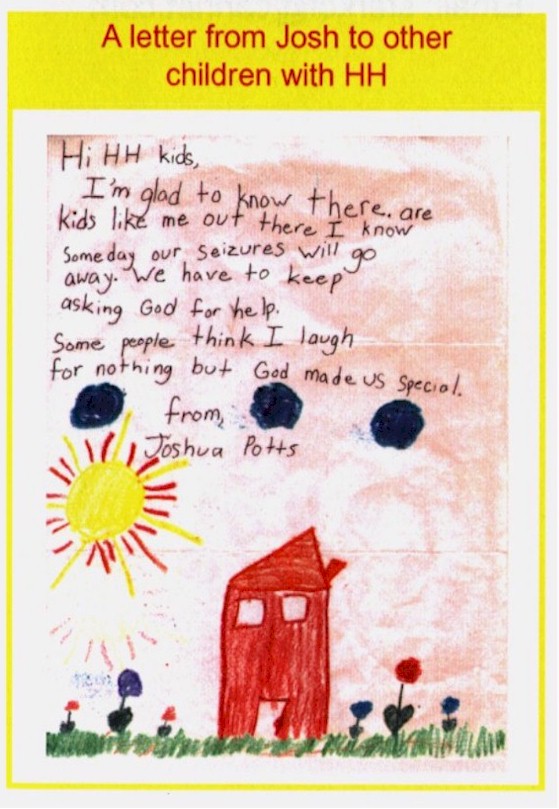 A letter from Josh to other
children with HH
Hi HH kids,
I'm glad to know there. are
kids like me out there I know
Someday our seizures will go
away. We have to keep
asking God for help.
Some people think I laugh
for nothing but God made us special.
from,
Joshua Potts